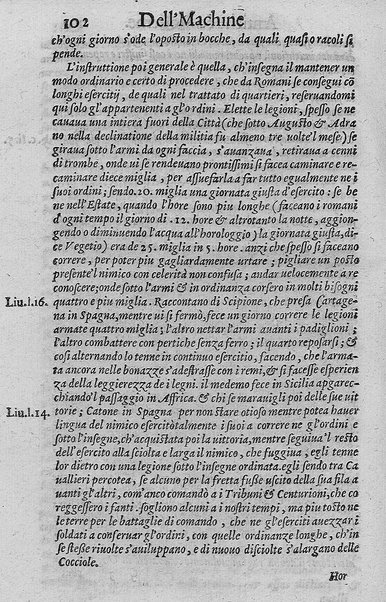 102 Dell'Machine
ch'ogni giorno s'ode l'oposto in bocche, da quali quasi oracoli si
pende.
L'instruttione poi generale è quella, ch'insegna il mantener un
modo ordinario e certo di procedere, che da Romani se consegui cō
longhi esercitij, de quali nel trattato di quartieri, reseruandomi
qui solo gl'appartenenti a gl'ordini. Elette le legioni, spesso se ne
cauaua una intiera fuori della Città (che sotto Augusto & Adra
no nella declinatione della militia fu almeno tre uolte'l mese) se
giraua sotto l'armi da ogni faccia, s'auanzaua, retiraua a cenni
di trombe, onde ui se rendeuano prontissimi si facea caminare e re-
caminare diece miglia, per assuefarla a far tutto egualmente ne i
suoi ordini; sendo.20. miglia una giornata giusta d'esercito: se be
ne nell'Estate, quando l'hore sono piu longhe (faceano i romani
d'ogni tempo il giorno di .12. hore & altrotanto la notte, aggion-
gendo o diminuendo l'acqua all'horologgio) la giornata giusta, di-
ce Vegetio) era de 25. miglia in 5. hore. anzi che spesso si faceano
correre, per poter piu gagliardamente urtare; pigliare un posto
presente'l nimico con celerità non confusa; andar uelocemente a re
conoscere; onde sotto l'armi & in ordinanza corsero in molti bisogni
Liu.l.16. quattro e piu miglia. Raccontano di Scipione, che presa Cartage-
na in Spagna, mentre ui si fermò, fece un giorno correre le legioni
armate quattro miglia; l'altro nettar l'armi auanti i padiglioni;
l'altro combattere con pertiche senza ferro; il quarto reposarsi; &
cosi alternando lo tenne in continuo esercitio, facendo, che l'arma-
ta ancora nelle bonazze s'adestrasse con i remi, & si facesse esperien
za della leggierezza de i legni. il medemo fece in Sicilia apparec-
chiando'l passaggio in Affrica. & chi se marauigli poi delle sue uit
Liu.l.14. torie; Catone in Spagna per non stare otioso mentre potea hauer
lingua del nimico esercitò talmente i suoi a correre ne gl'ordini e
sotto l'insegne, ch'acquistata poi la uittoria, mentre seguiua'l resto
dell'esercito alla sciolta e larga il nimico, che fuggiua, egli tenne
lor dietro con una legione sotto l'insegne ordinata. egli sendo tra Ca
uallieri percotea, se alcuno per la fretta fusse uscito della sua fila a
uanti gl'altri, com'anco comandò a i Tribuni & Centurioni, che co
reggessero i fanti. sogliono alcuni a i nostri tempi, ma piu tosto ne
le terre per le battaglie di comando, che ne gl'eserciti auezzar i
soldati a conseruar gl'ordini, con quelle ordinanze longhe, ch'in
se stesse riuolte s'auiluppano, e di nuouo disciolte s'alargano delle
Cocciole.
Hor